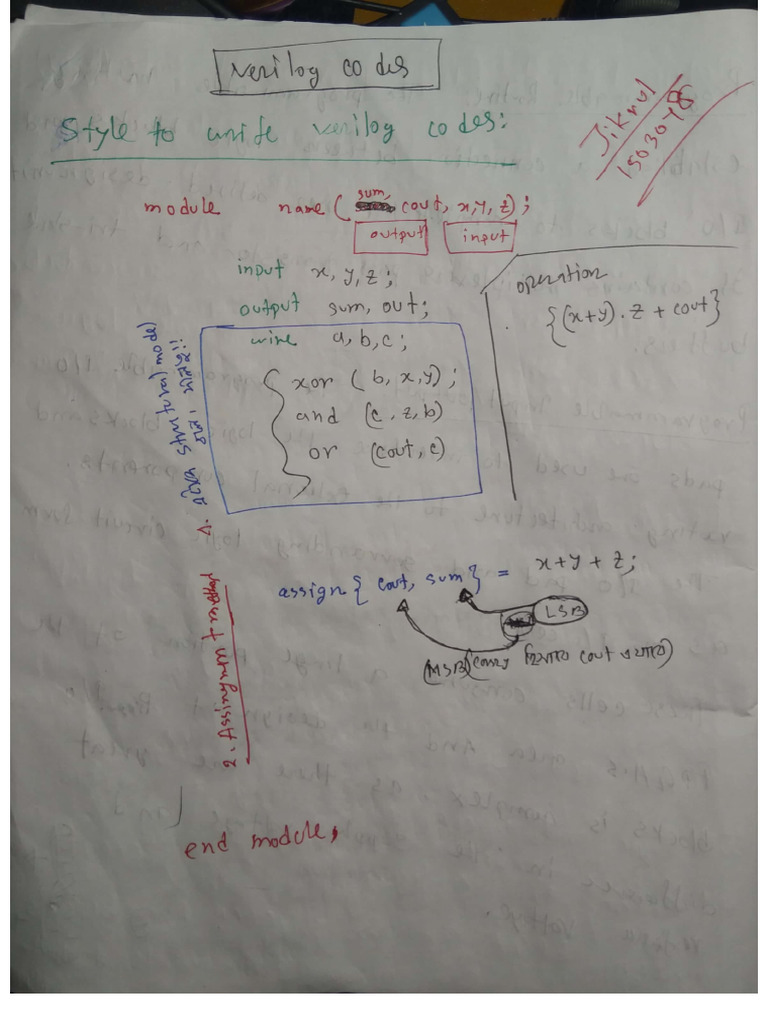 verilog codes
Style to write verilog codes:
Jiknul
1503078
module name (sum, cout, x,y, z);
output input
input x, y, z;
output sum, out;
wire a, b, c;
xor (b, x,y);
and (c. z, b)
or (cout, c)
operation
{(x+y). z + cout}
1. structural mode)
assign { cout, sum } = x+y + z;
LSB
(MSB) (carry হিসাবে cout এ যাবে)
2. Assignment
end module,